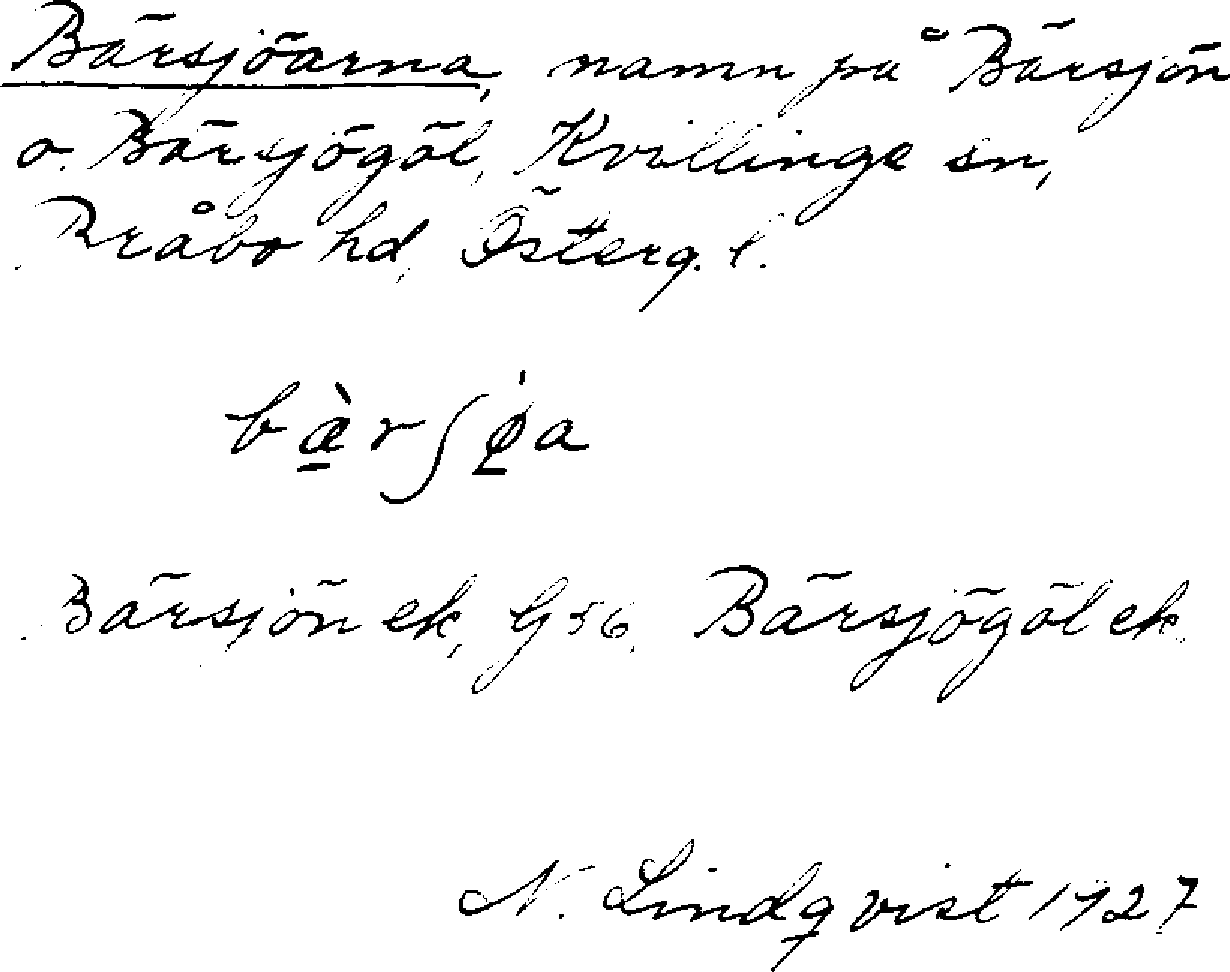 Bärsjöarna, namn på Bärsjön
o. Bärsjögöl, Kvillinge sn,
Bråbo hd, Österg. l.
bæ̀rʃø̍a
Bärsjön ek, G 56. Bärsjögöl ek.
N. Lindqvist 1927